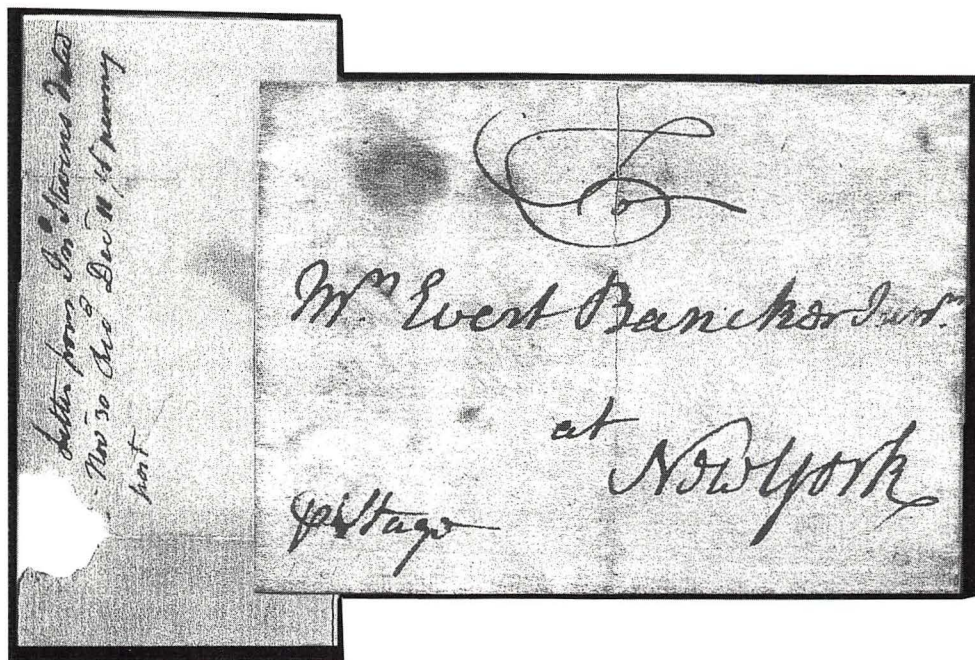 Letter from Jno Stevens Dated
Nov 30 Recd Decr 11, by penny
post
Mr. Evert Bancker Junr.
at
New York
pr Stage